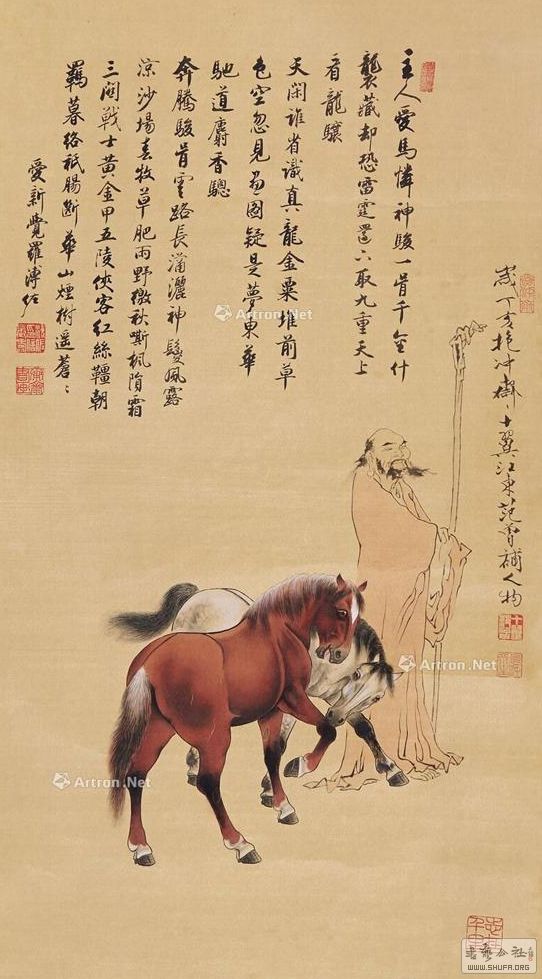 主人愛馬憐神駿一骨千金什
襲藏却恐雷霆還下取九重天上
看龍驤
天閑誰省識真龍金粟堆前草
色空忽見畫圖疑是夢東華
馳道麝香驄
奔騰駿骨雲路長瀟灑神鬉風露
涼沙場春牧草肥雨野徼秋嘶楓隕霜
三關戰士黃金甲五陵俠客紅絲韁朝
羈暮絡祇腸斷華山煙樹遙蒼〻
愛新覺羅溥佺
歲丁亥抱冲齋十翼江東范曾補人物
Artron.Net
Artron.Net
Artron.Net
書法公社
WWW.SHUFA.ORG